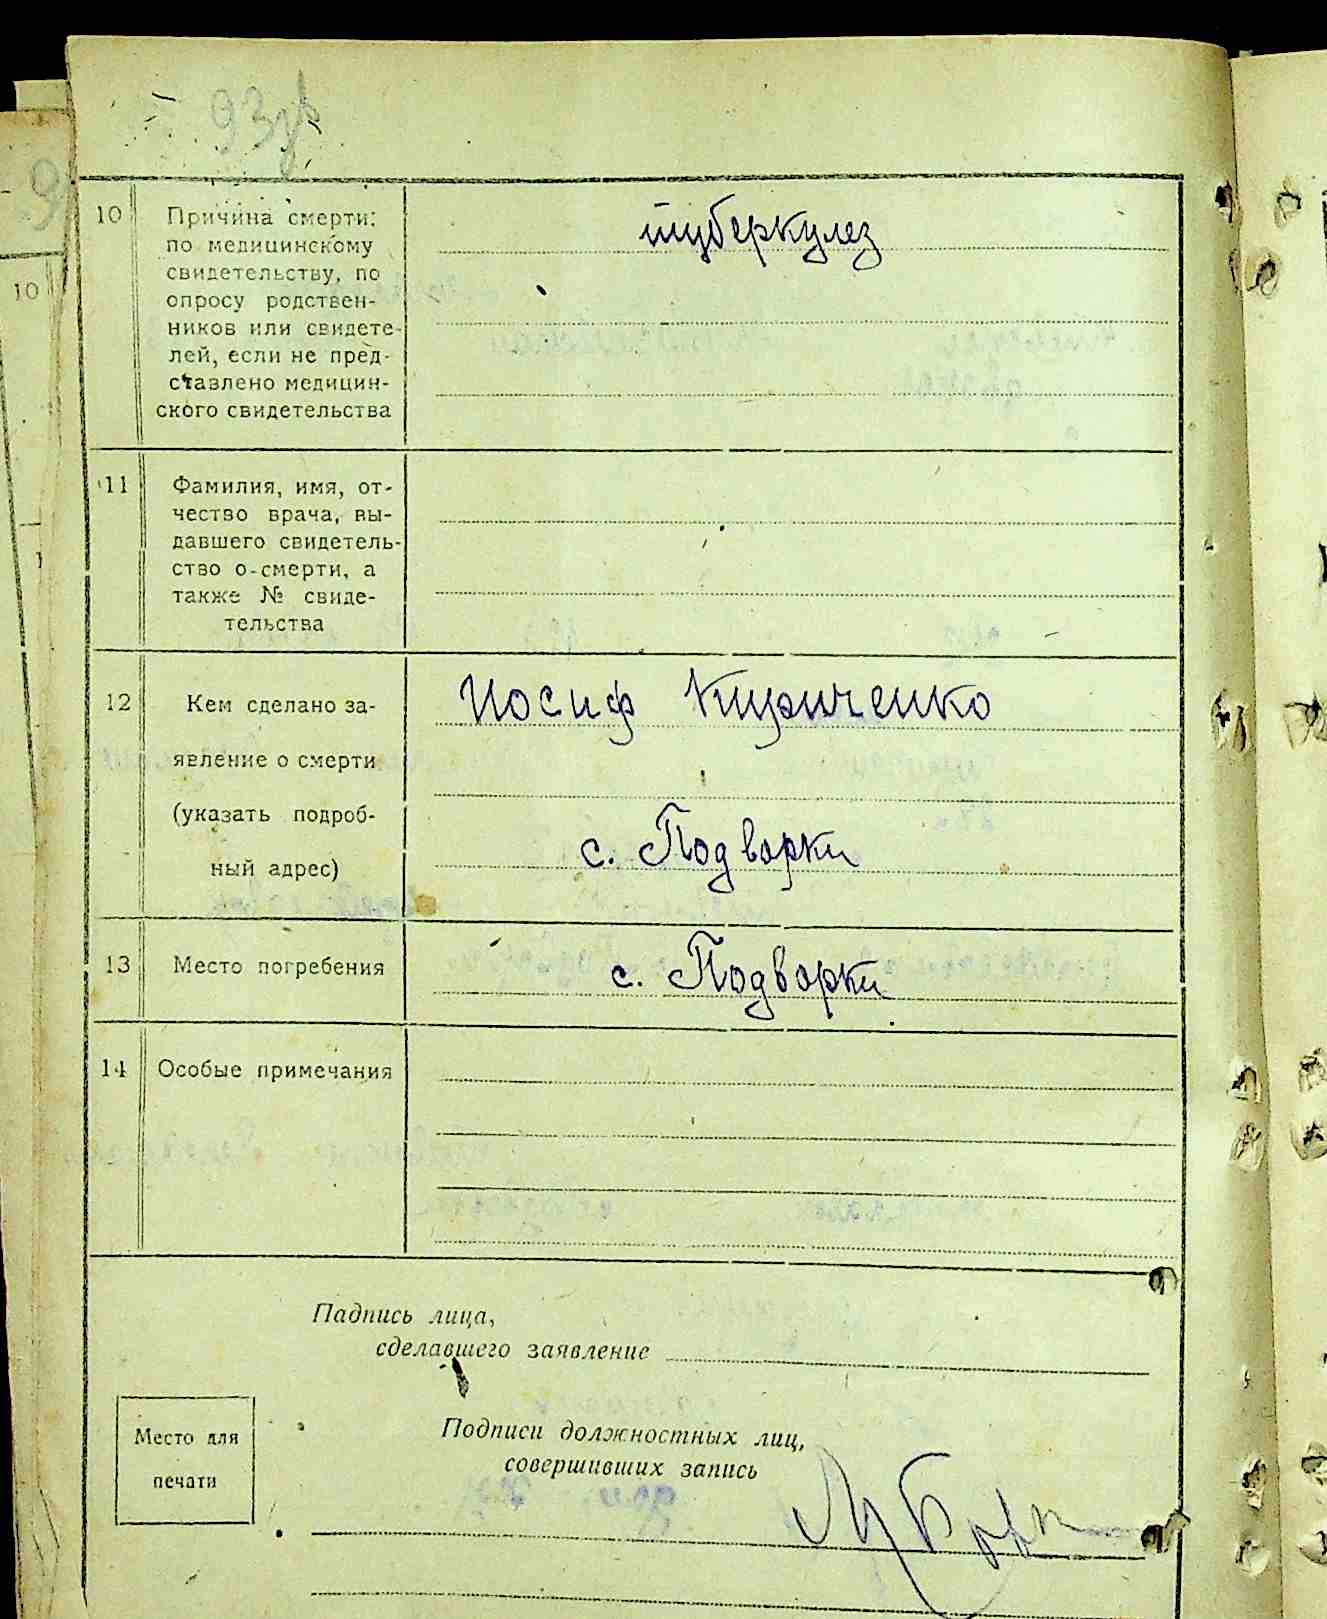 93
10
Причина смерти:
по медицинскому
свидетельству, по
опросу родствен-
ников или свидете-
лей, если не пред-
ставлено медицин-
ского свидетельства
туберкулез
10
11
Фамилия, имя, от-
чество врача, вы-
давшего свидетель-
ство о смерти, а
также № свиде-
тельства
12
Кем сделано за-
явление о смерти
(указать подроб-
ный адрес)
Иосиф Кириченко
с. Подворки
13 Место погребения
с. Подворки
14 Особые примечания
Падпись лица,
сделавшего заявление
Место для
печати
Подписи должностных лиц,
совершивших запись